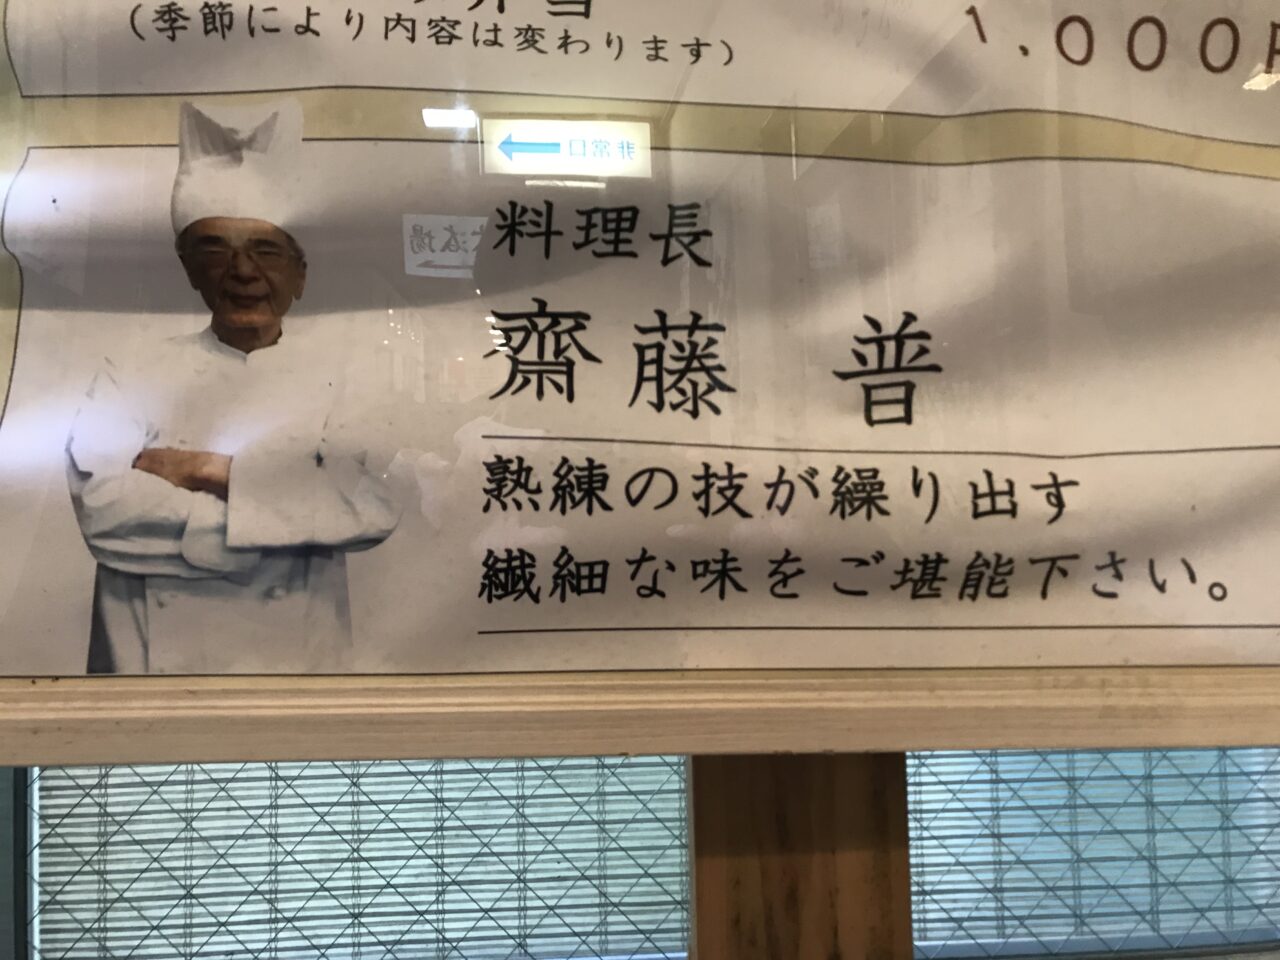 弁当
(季節により内容は変わります)
1.000円
非常口
大浴場
料理長
齋藤 普
熟練の技が繰り出す
繊細な味をご堪能下さい。